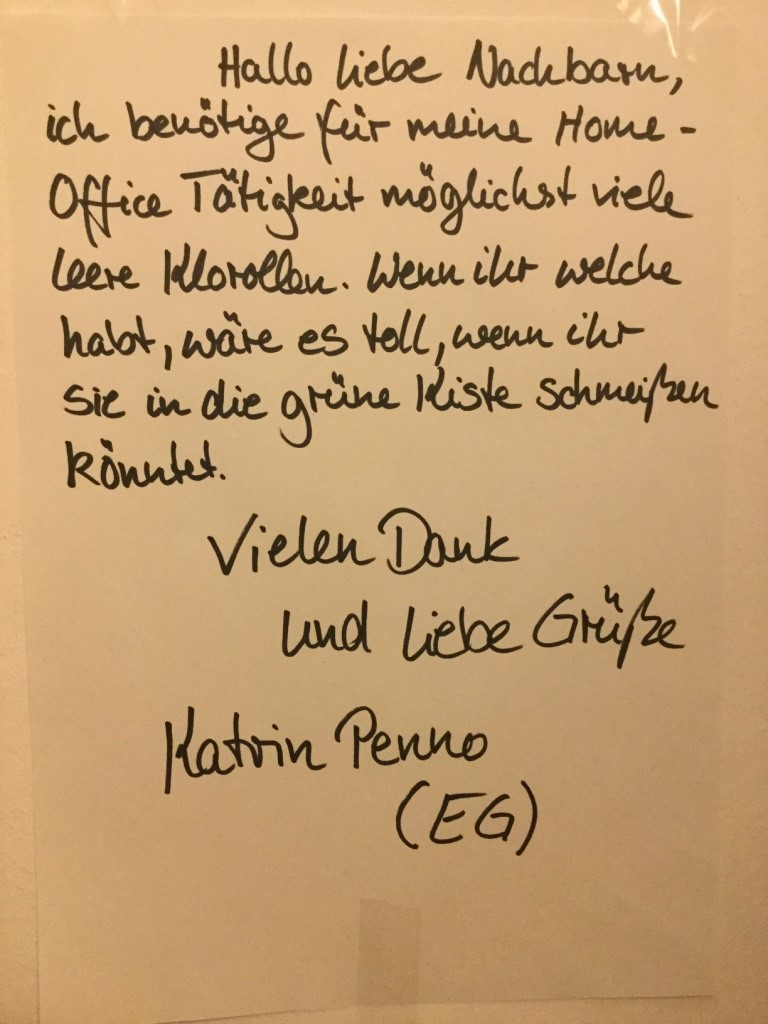 Hallo liebe Nachbarn,
ich benötige für meine Home-
Office Tätigkeit möglichst viele
leere Klorollen. Wenn ihr welche
habt, wäre es toll, wenn ihr
sie in die grüne Kiste schmeißen
könntet.
Vielen Dank
und liebe Grüße
Katrin Penno
(EG)